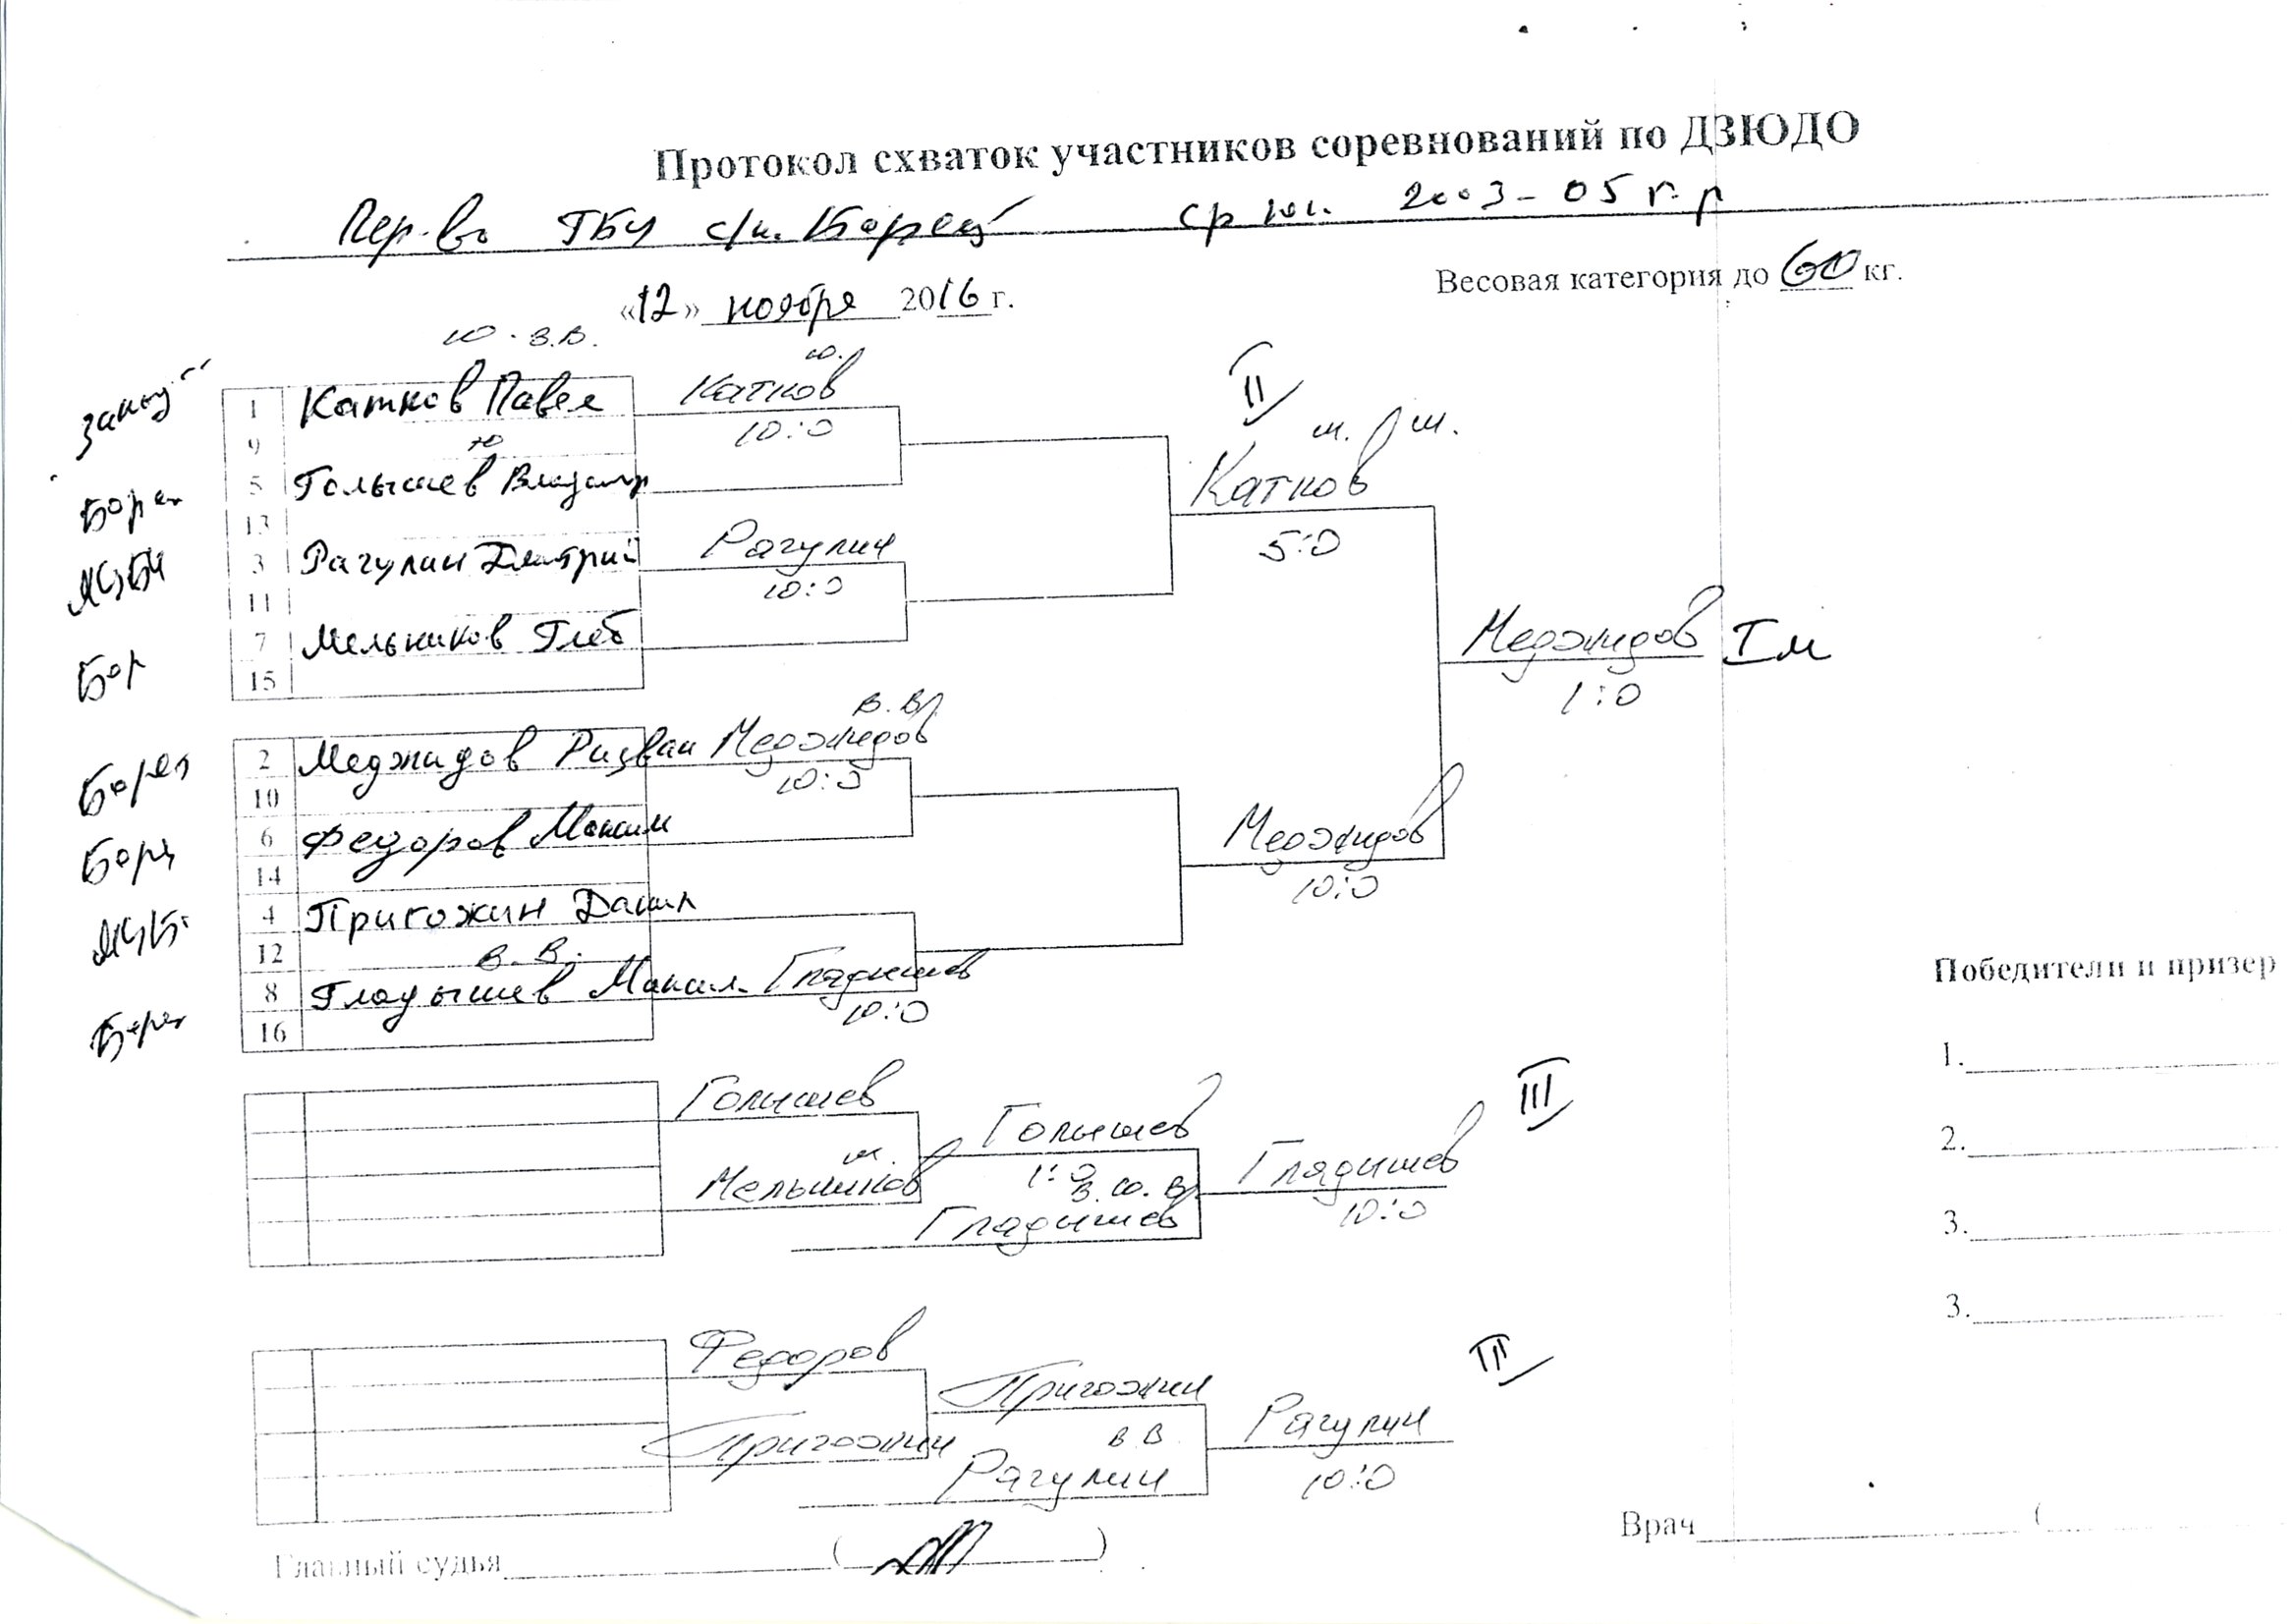 Протокол схваток участников соревнований по ДЗЮДО
Пер-во ГБУ с/к. Борец ср юн. 2003-05 г.р
«12» ноября 2016 г.
Весовая категория до 60 кг.
ю. в.в.
1 Катков Павел
9
ю
5 Голышев Владимир
13
3 Рагулин Дмитрий
11
7 Мельников Глеб
15
Борец
Бор
2 Меджидов Ризван
10
6 Федоров Максим
14
4 Пригожин Данил
12
в.в.
8 Гладышев Максим
16
Борец
Борец
ю.
Катков
10:0
Рагулин
10:0
в.в
Меджидов
10:0
Гладышев
10:0
II
ш. ш.
Катков
5:0
Меджидов
10:0
Меджидов I м
1:0
Голышев
ш.
Мельников
Голышев
1:0
в.ю.в
Гладышев
Гладышев
10:0
III
Федоров
Пригожин
Пригожин
в.в
Рагулин
Рагулин
10:0
III
Победители и призер
1.
2.
3.
3.
Главный судья ( )
Врач (